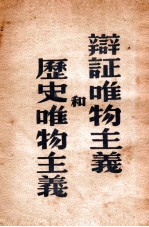 辯証唯物主義
和
歷史唯物主義